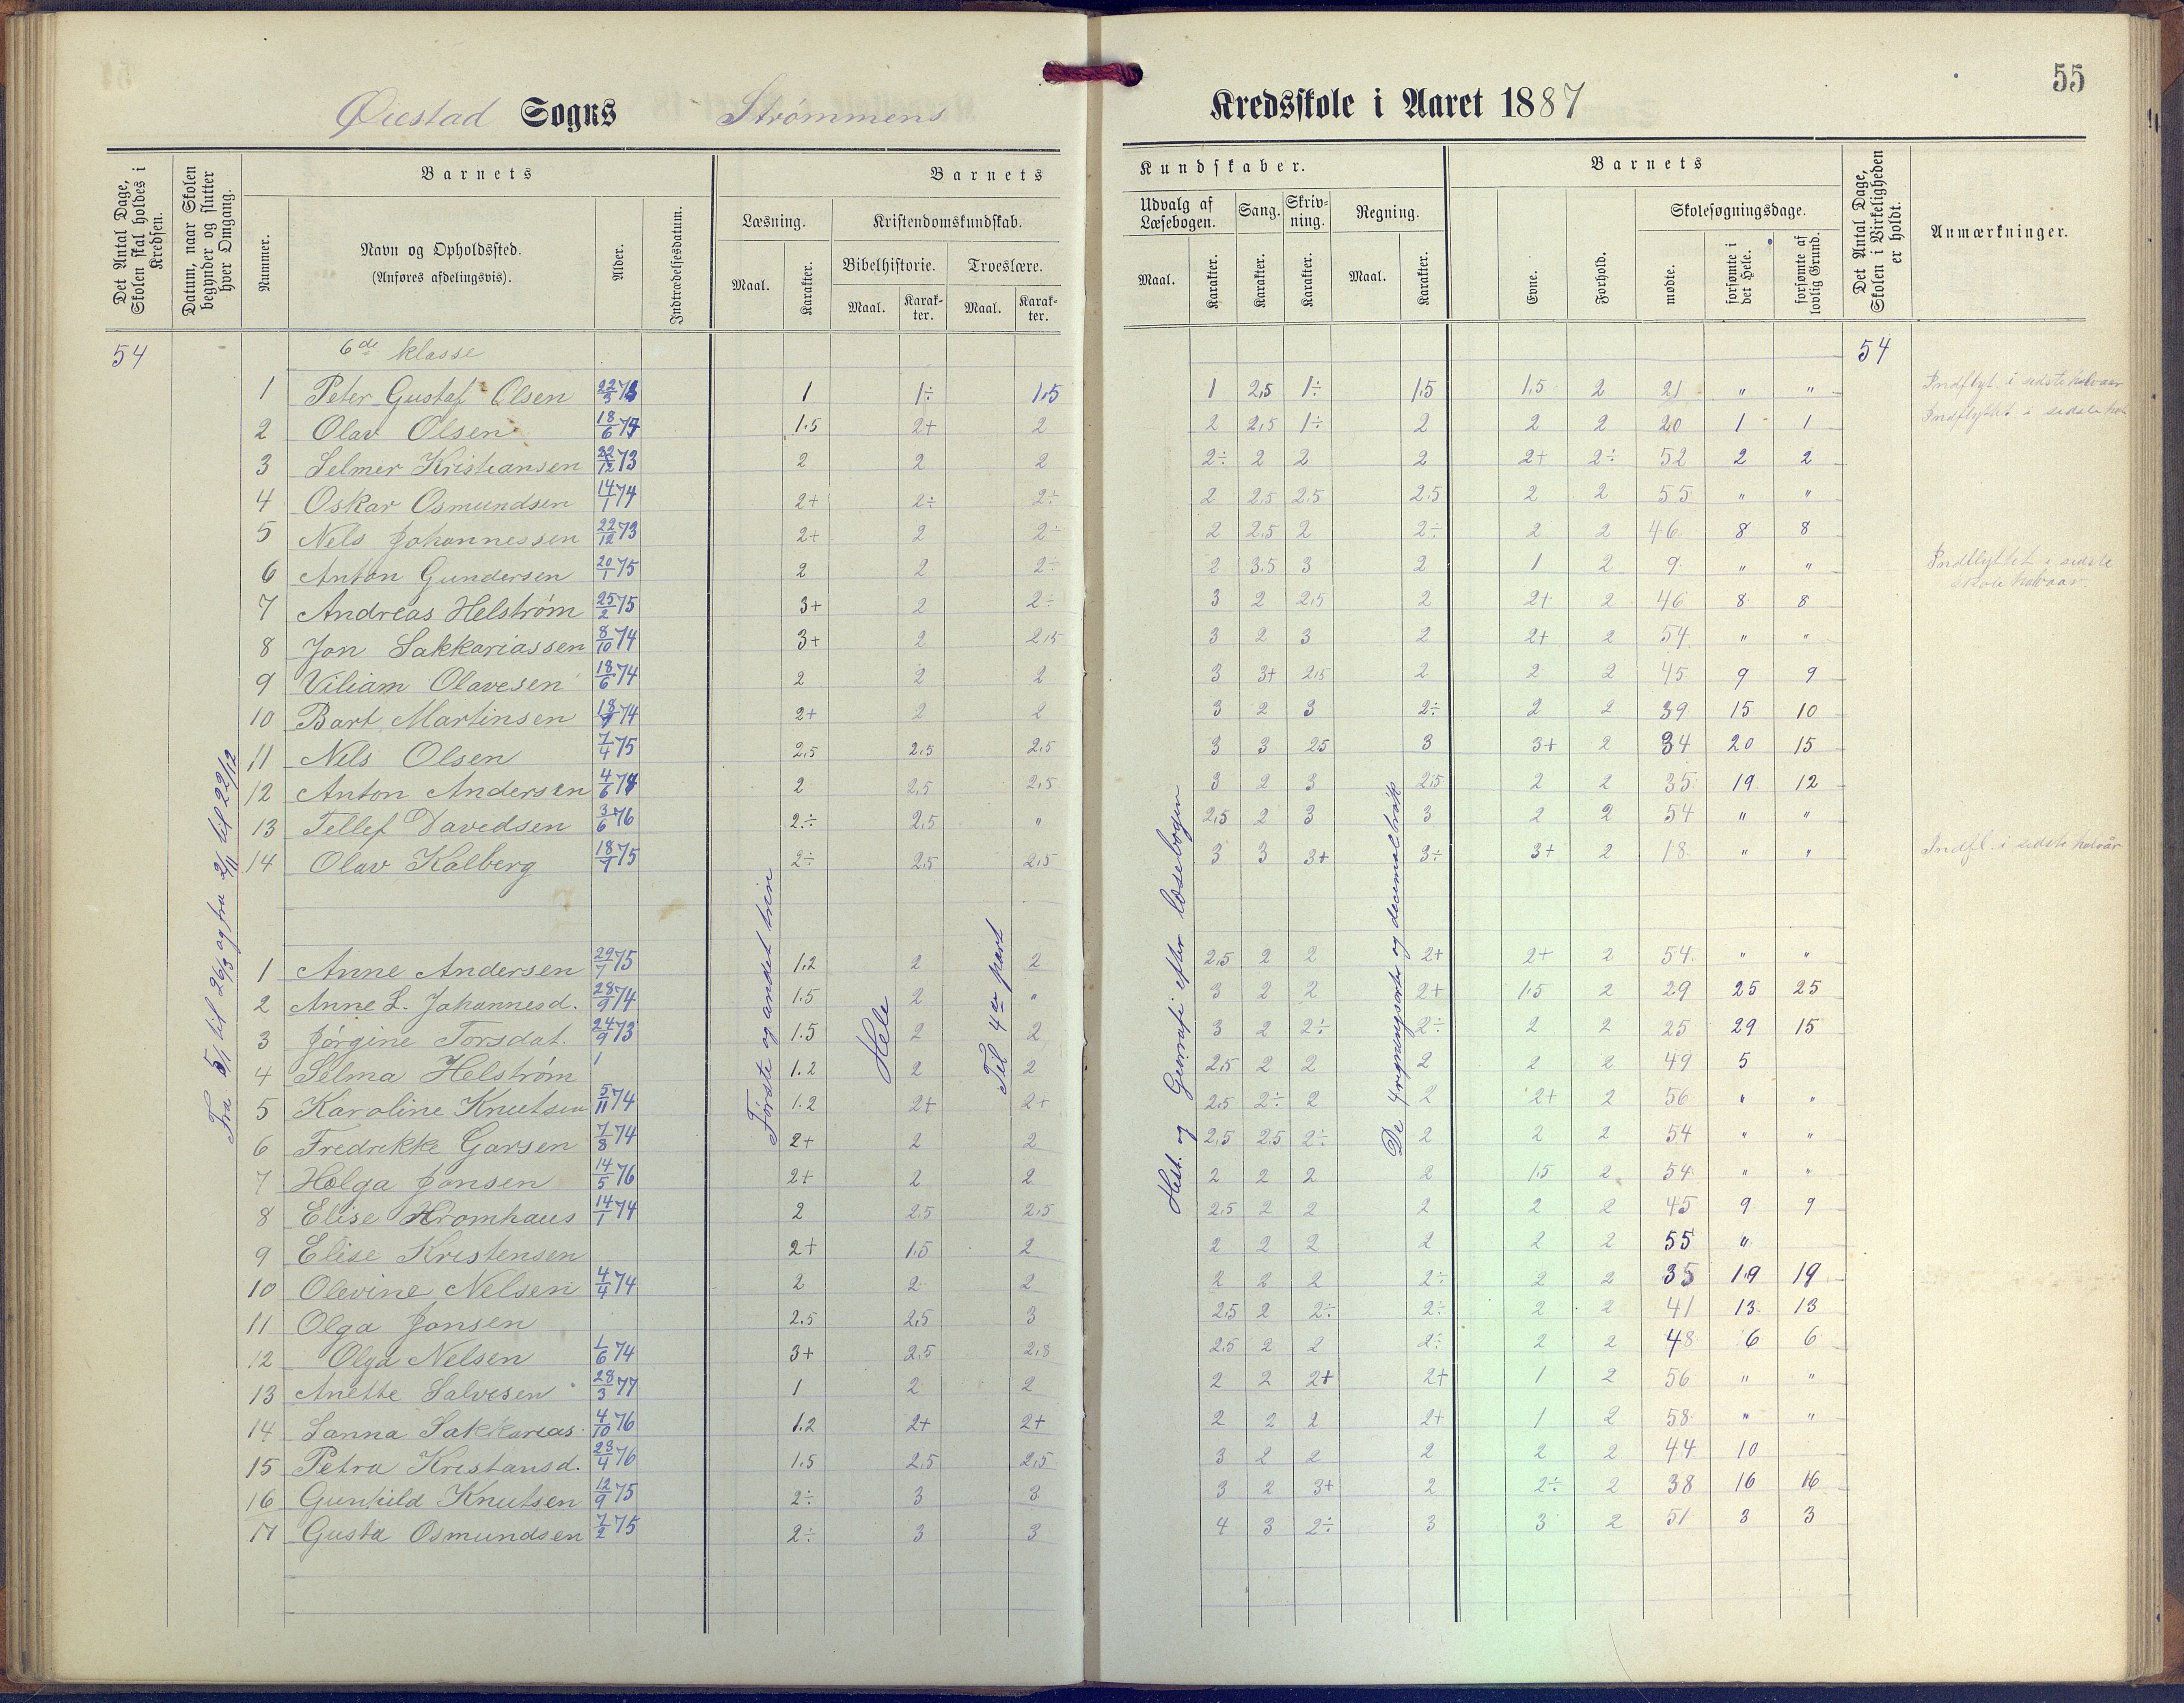 55
Øiestad Sogns Strømmens Kredsskole i Aaret 1887
Det Antal Dage, Skolen skal holdes i Kredsen.
Datum, naar Skolen begynder og slutter hver Omgang.
Barnets
Nummer.
Navn og Opholdssted.
(Anføres afdelingsvis).
Alder.
Indtrædelsesdatum.
Barnets Kundskaber.
Læsning.
Maal.
Karakter.
Kristendomskundskab.
Bibelhistorie.
Maal.
Karakter.
Troeslære.
Maal.
Karakter.
Udvalg af Læsebogen.
Maal.
Karakter.
Sang.
Karakter.
Skrivning.
Karakter.
Regning.
Maal.
Karakter.
Barnets
Evne.
Forhold.
Skolesøgningsdage.
mødte.
forsømte i det Hele.
forsømte af lovlig Grund.
Det Antal Dage, Skolen i Virkeligheden er holdt.
Anmærkninger.
54 6de klasse 54
1 Peter Gustaf Olsen 22/5 73 1 1÷ 1,5 1 2,5 1÷ 1,5 1,5 2 21 " " Indflyt. i sidste halvaar
2 Olav Olsen 18/6 74 1.5 2+ 2 2 2,5 1÷ 2 2 2 20 1 1 Indflyttet i sidste
3 Selmer Kristiansen 22/12 73 2 2 2 2÷ 2 2 2 2+ 2÷ 52 2 2
4 Oskar Osmundsen 14/1 74 2+ 2÷ 2÷ 2 2.5 2.5 2.5 2 2 55 " "
5 Nels Johannessen 22/12 73 2+ 2 2÷ 2 2.5 2 2÷ 2 2 46 8 8
6 Anton Gundersen 20/1 75 2 2 2÷ 2 3.5 3 2 1 2 9 " " Indflyttet i sidste skole halvaar.
7 Andreas Helstrøm 25/2 75 3+ 2 2÷ 3 2 2,5 2 2+ 2 46 8 8
8 Jon Sakkariassen 8/10 74 3+ 2 2,5 3 2 3 2 2+ 2 54 " "
9 Viliam Olavesen 18/6 74 2 2 2 3 3+ 2,5 2 2 2 45 9 9
10 Bart Martinsen 18/9 74 2+ 2 2 3 2 3 2÷ 2 2 39 15 10
11 Nils Olsen 7/4 75 2,5 2.5 2,5 3 3 25 3 3+ 2 34 20 15
12 Anton Andersen 4/6 74 2 2,5 2,5 3 2 3 2,5 2 2 35 19 12
13 Tellef Davedsen 3/6 76 2÷ 2,5 " 2,5 2 3 3 2 2 54 " "
14 Olav Kalberg 18/9 75 2÷ 2,5 2,5 3 3 3+ 3÷ 3+ 2 18 " " Indfl. i sidste halvår
Fra 5/1 til 26/3 og fra 2/11 til 22/12
Første og andet trin
Hele
Til 4de part
Hist. og Geografi efter læsebogen
De 4 regningsarter og decimalbrøk
1 Anne Andersen 29/7 75 1.2 2 2 2,5 2 2 2+ 2+ 2 54 " "
2 Anne L. Johannesd. 28/9 74 1.5 2 " 3 2 2 2+ 1,5 2 29 25 25
3 Jørgine Torsdat. 24/9 73 1.5 2 2 3 2 2÷ 2÷ 2 2 25 29 15
4 Selma Helstrøm 1 1.2 2 2 2,5 2 2 2 2 2 49 5
5 Karoline Knutsen 5/11 74 1.2 2+ 2+ 2.5 2÷ 2 2 2+ 2 56 " "
6 Fredrikke Garsen 7/8 74 2+ 2 2 2,5 2,5 2÷ 2 2 2 54 " "
7 Helga Jonsen 14/5 76 2+ 2 2 2 2 2 2 1,5 2 54 " "
8 Elise Kromhaus 14/1 74 2 2.5 2,5 2,5 2 2 2 2 2 45 9 9
9 Elise Kristensen 2+ 1.5 2 2 2 2 2 2 2 55 "
10 Olevine Nelsen 4/4 74 2 2 2 2 2 2 2÷ 2 2 35 19 19
11 Olga Jonsen 2.5 2,5 3 2,5 2 2÷ 2÷ 2 2 41 13 13
12 Olga Nelsen 1/6 74 3+ 2,5 2,8 2,5 2 2 2÷ 2 2 48 6 6
13 Anette Salvesen 28/3 77 1 2 2 2 2 2+ 2+ 1 2 56 " "
14 Sanna Sakkarias. 4/10 76 1.2 2+ 2+ 2 2 2 2+ 1 2 58 " "
15 Petra Kristansd. 23/4 76 1.5 2.5 2,5 3 2 2 2 2 2 44 10
16 Gunhild Knutsen 12/9 75 2÷ 3 3 3 2 3+ 2 2÷ 2 38 16 16
17 Gusta Osmundsen 7/2 75 2÷ 3 3 4 3 2÷ 3 3 2 51 3 3